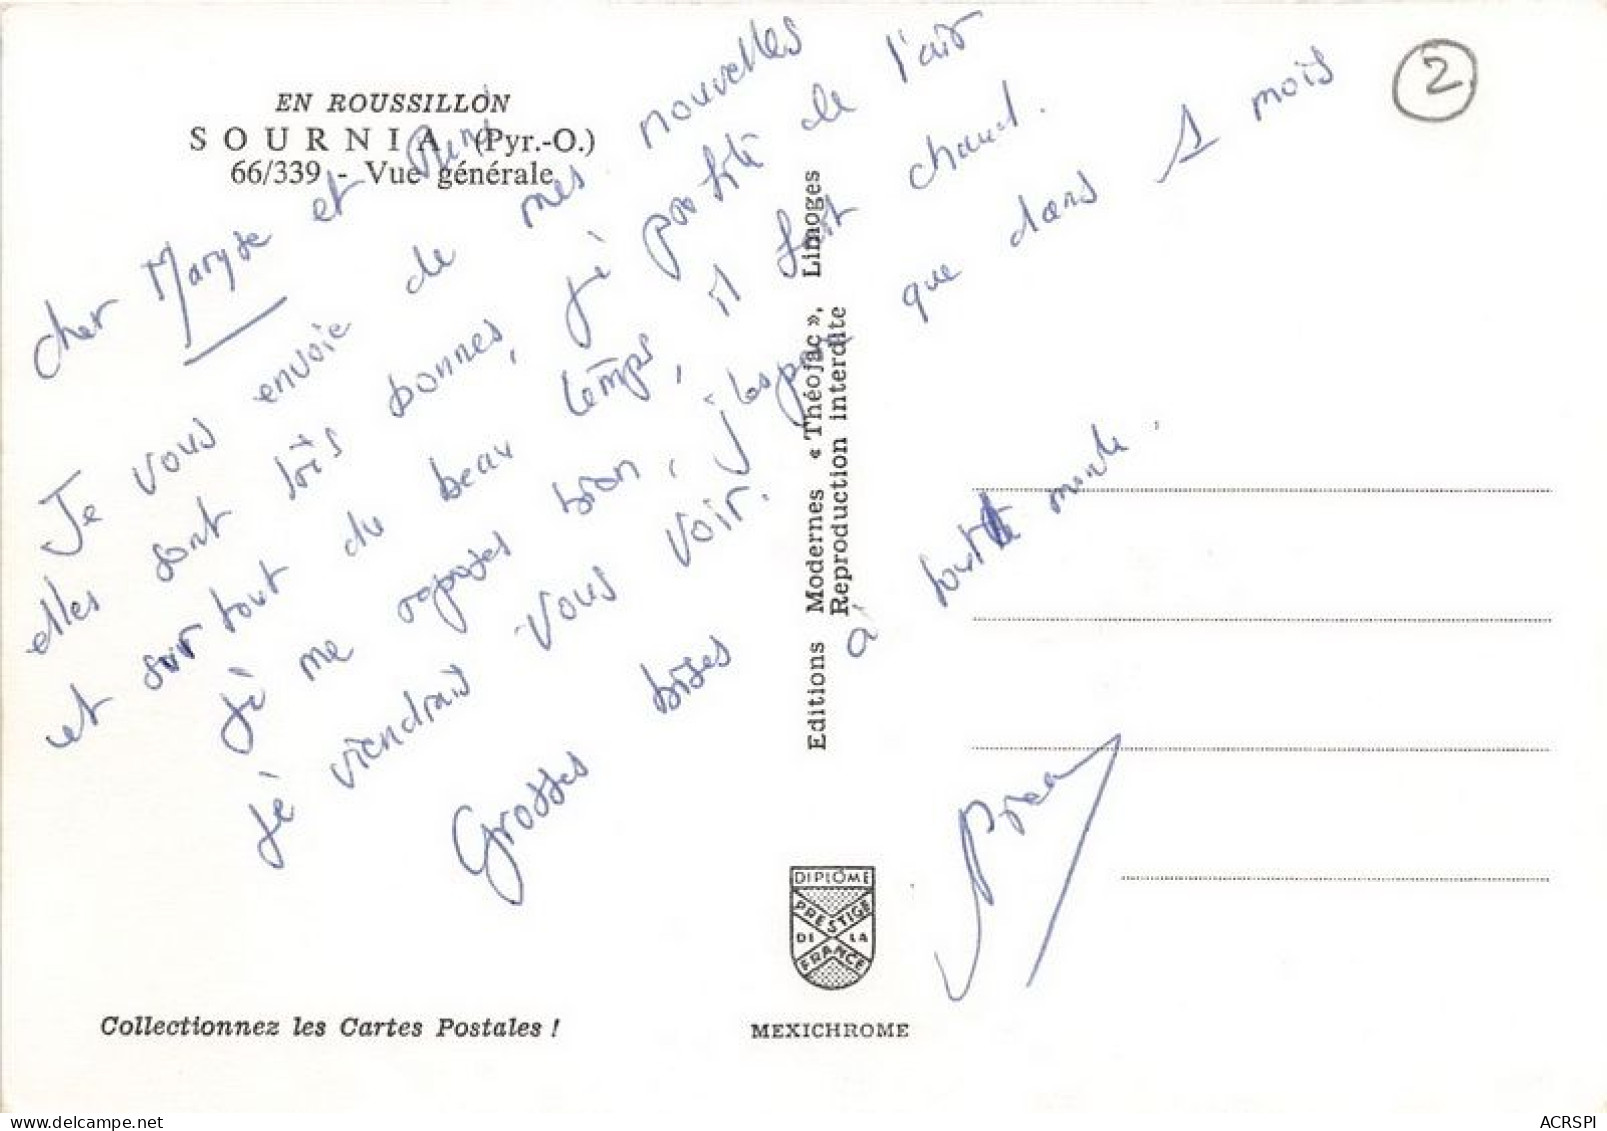 EN ROUSSILLON
SOURNIA (Pyr.-O.)
66/339 - Vue générale
2
cher Maryse et
Je vous envoie de mes nouvelles
elles sont très bonnes, j'é profité de l'air
et surtout du beau temps, il fait chaud.
Jé me reposes bien, j'espere que dans 1 mois
Jé viendrais vous voir.
Grosses bises à tout le monde.
Editions Modernes « Théojac », Limoges
Reproduction interdite
DIPLÔME
PRESTIGE
DE LA
FRANCE
Collectionnez les Cartes Postales !
MEXICHROME
ACRSPI